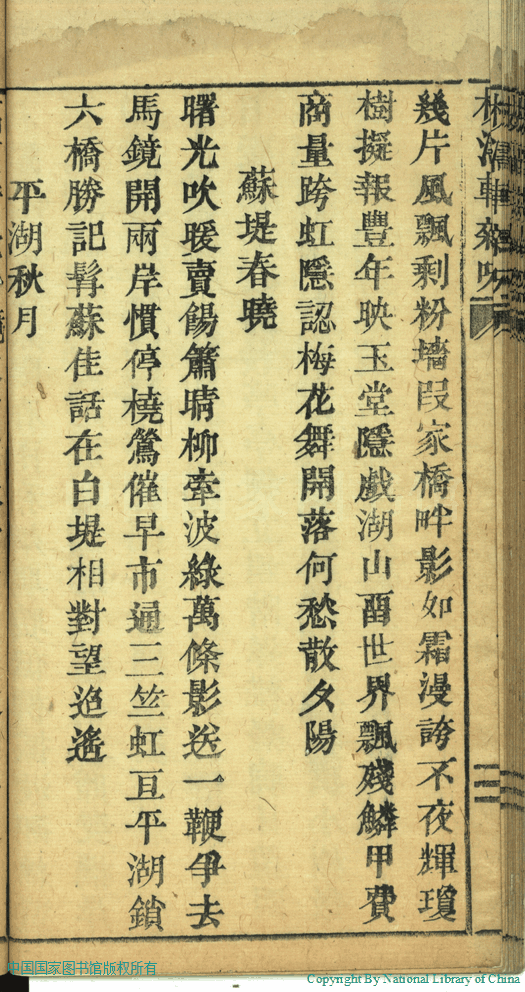 幾片風飄剩粉墻段家橋畔影如霜漫誇不夜輝瓊
樹擬報豐年映玉堂隱戲湖山畱世界飄殘鱗甲費
商量跨虹隱認梅花舞開落何愁散夕陽
蘇堤春曉
曙光吹暖賣餳簫晴柳牽波綠萬條影送一鞭爭去
馬鏡開兩岸慣停橈鶯催早市通三竺虹亘平湖鎖
六橋勝記髯蘇佳話在白堤相對望迢遙
平湖秋月
二
中国国家图书馆版权所有
Copyright By National Library of China